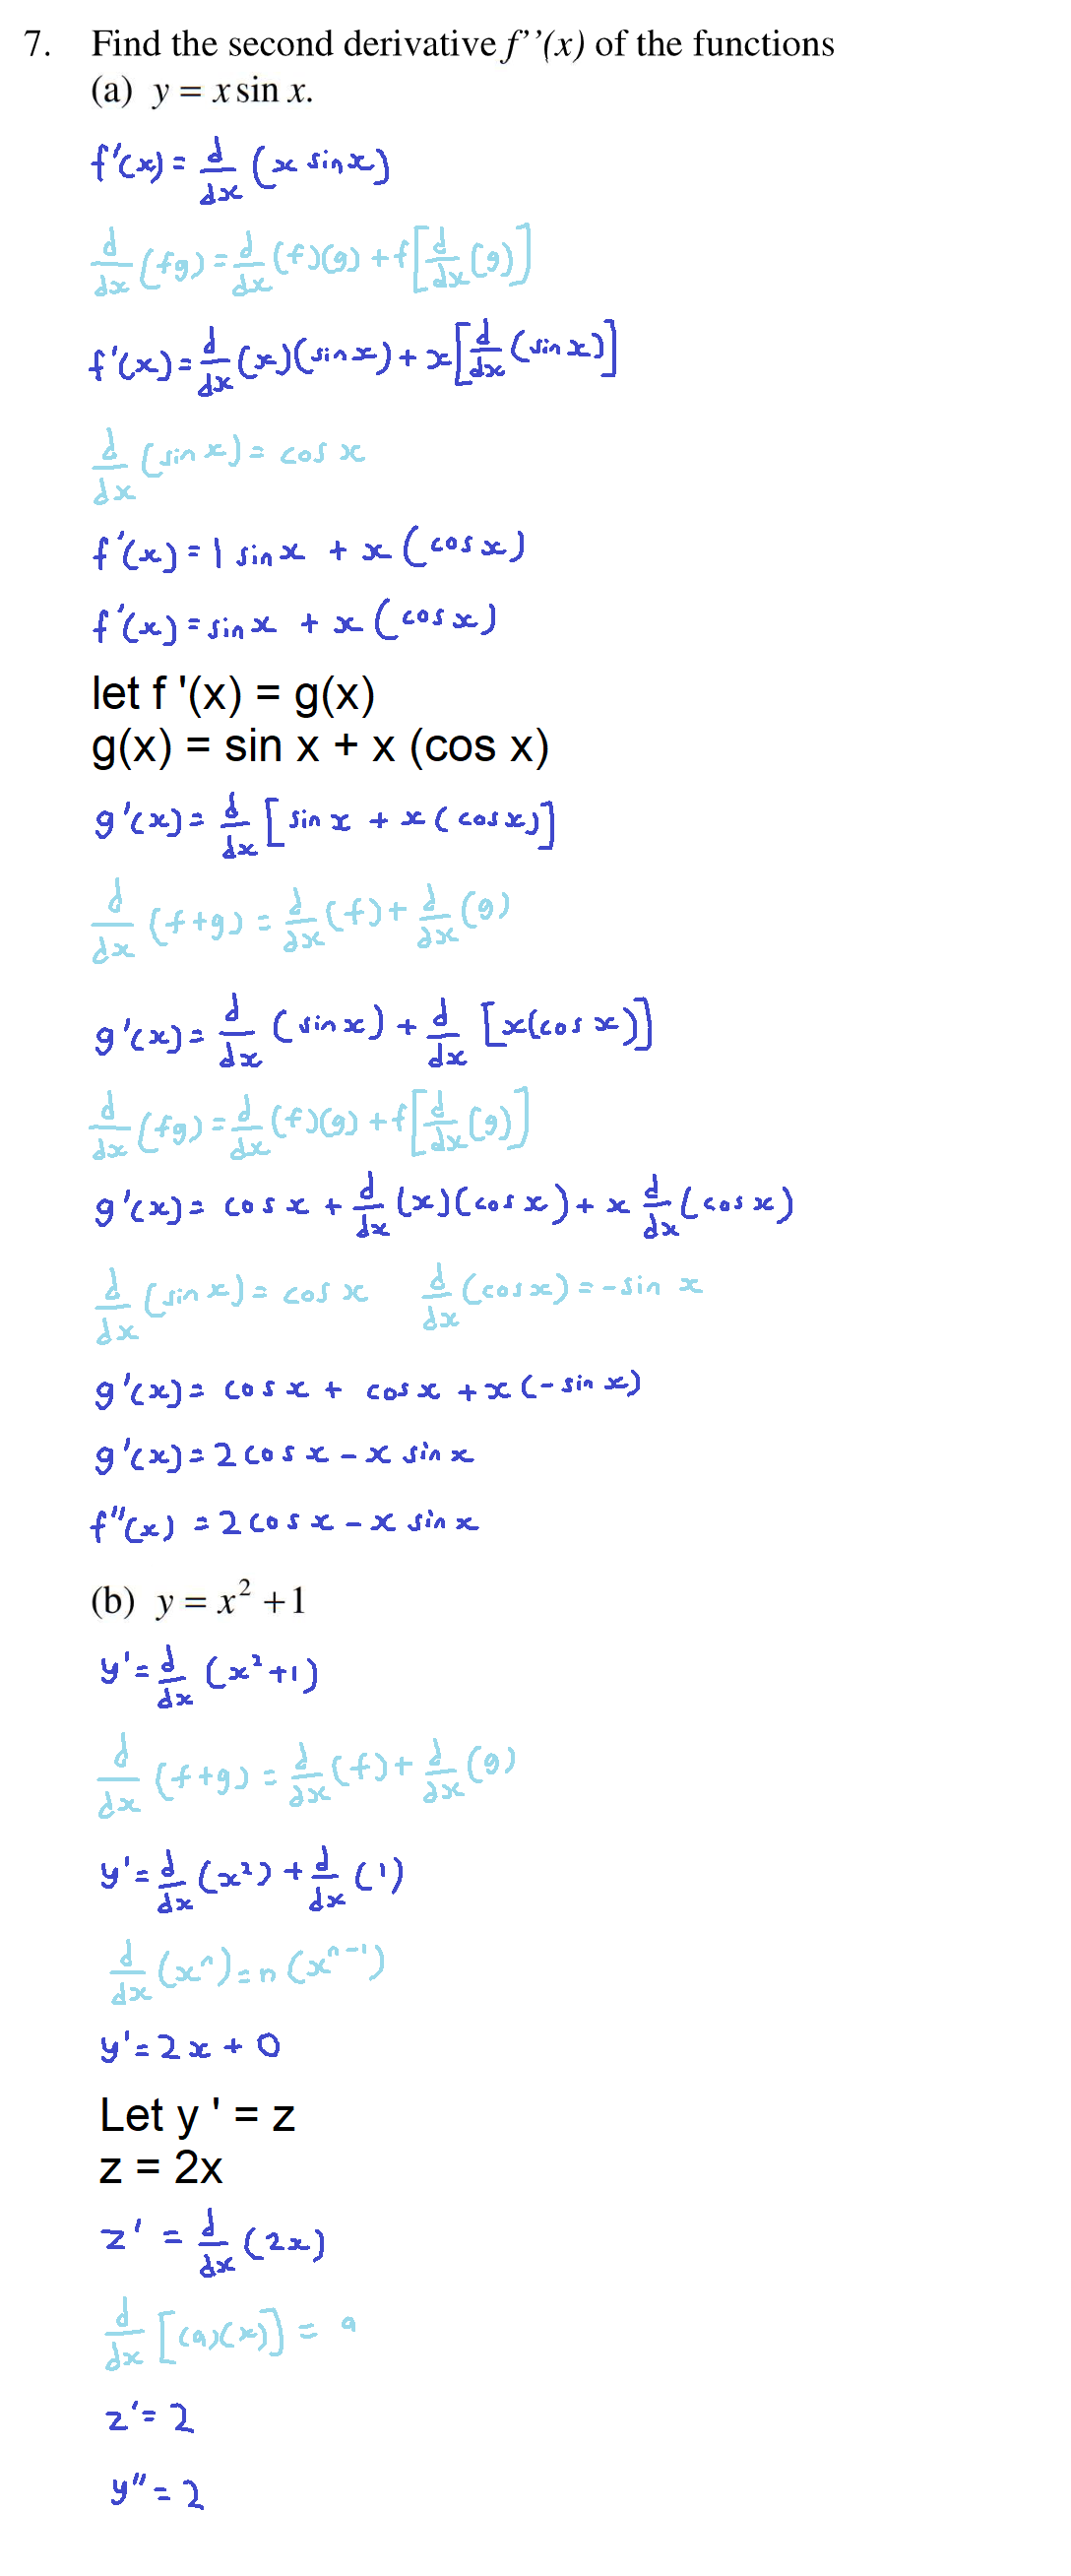 7. Find the second derivative f’’(x) of the functions
(a) y = x sin x.
f'(x) = d/dx (x sin x)
d/dx (fg) = d/dx (f)(g) + f[d/dx (g)]
f'(x) = d/dx (x)(sin x) + x[d/dx (sin x)]
d/dx (sin x) = cos x
f'(x) = 1 sin x + x (cos x)
f'(x) = sin x + x (cos x)
let f '(x) = g(x)
g(x) = sin x + x (cos x)
g'(x) = d/dx [sin x + x (cos x)]
d/dx (f+g) = d/dx (f) + d/dx (g)
g'(x) = d/dx (sin x) + d/dx [x(cos x)]
d/dx (fg) = d/dx (f)(g) + f[d/dx (g)]
g'(x) = cos x + d/dx (x)(cos x) + x d/dx (cos x)
d/dx (sin x) = cos x d/dx (cos x) = -sin x
g'(x) = cos x + cos x + x (-sin x)
g'(x) = 2 cos x - x sin x
f''(x) = 2 cos x - x sin x
(b) y = x² +1
y' = d/dx (x²+1)
d/dx (f+g) = d/dx (f) + d/dx (g)
y' = d/dx (x²) + d/dx (1)
d/dx (xⁿ) = n (xⁿ⁻¹)
y' = 2x + 0
Let y ' = z
z = 2x
z' = d/dx (2x)
d/dx [(a)(x)] = a
z' = 2
y'' = 2